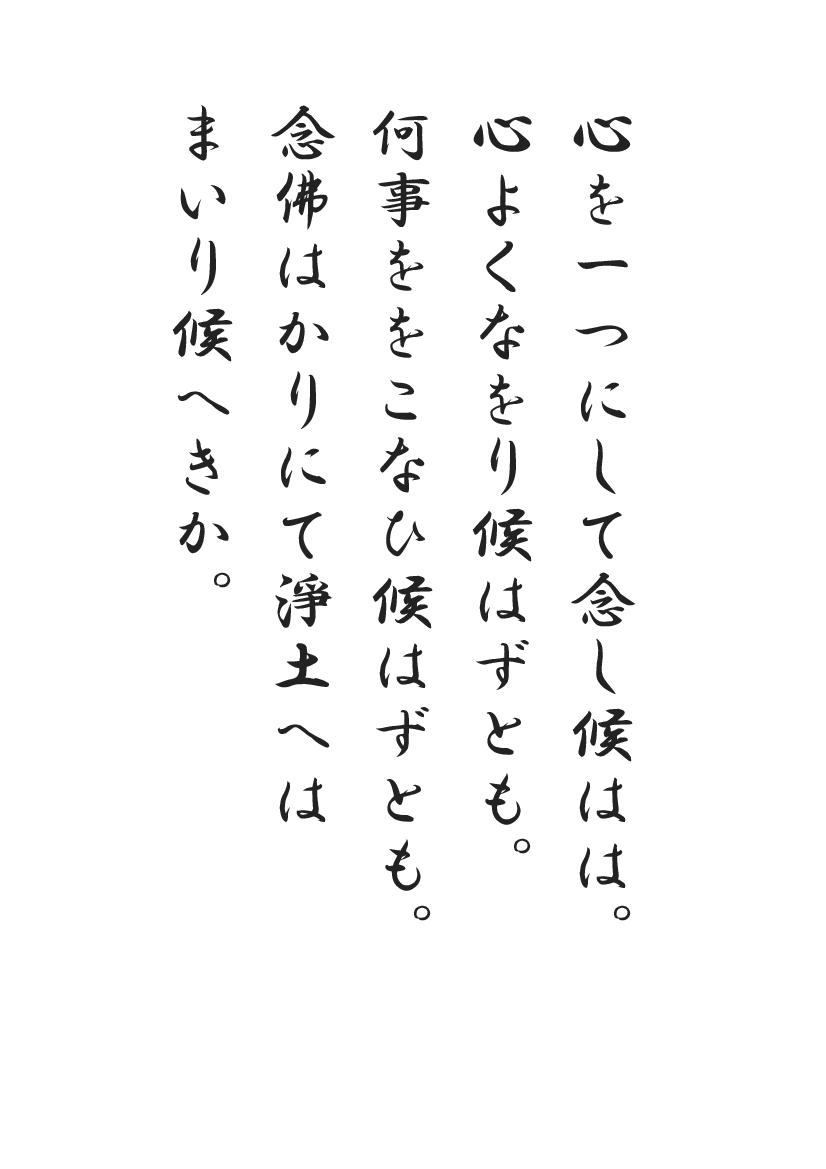 心を一つにして念し候はは。
心よくなをり候はずとも。
何事ををこなひ候はずとも。
念佛はかりにて淨土へは
まいり候へきか。